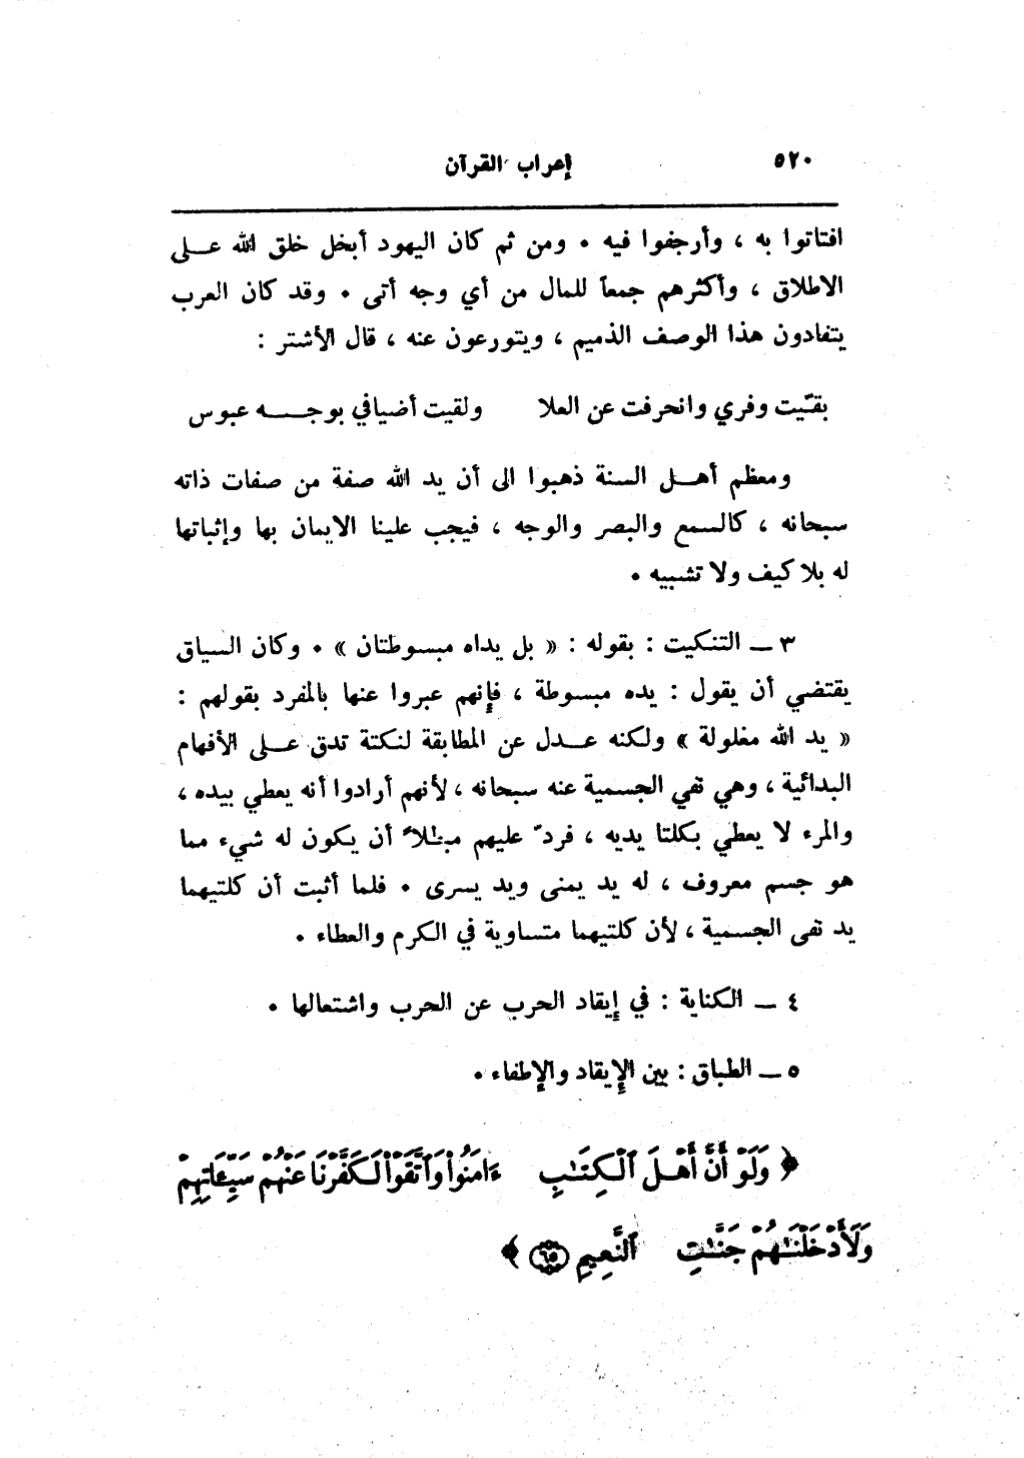 ٥٢٠
إعراب القرآن
افتاتوا به ، وأرجفوا فيه . ومن ثم كان اليهود أبخل خلق الله عـلى
الاطلاق ، وأكثرهم جمعاً للمال من أي وجه أتى . وقد كان العرب
يتفادون هذا الوصف الذميم ، ويتورعون عنه ، قال الأشتر :
بقـّيت وفري وانحرفت عن العلا ولقيت أضيافي بوجـــه عبوس
ومعظم أهـل السنة ذهبوا الى أن يد الله صفة من صفات ذاته
سبحانه ، كالسمع والبصر والوجه ، فيجب علينا الايمان بها وإثباتها
له بلا كيف ولا تشبيه .
٣ ــ التنكيت : بقوله : « بل يداه مبسوطتان » . وكان السياق
يقتضي أن يقول : يده مبسوطة ، فإنهم عبروا عنها بالمفرد بقولهم :
« يد الله مغلولة » ولكنه عـدل عن المطابقة لنكتة تدق عـلى الأفهام
البدائية ، وهي نفي الجسمية عنه سبحانه ، لأنهم أرادوا أنه يعطي بيده ،
والمرء لا يعطي بكلتا يديه ، فردّ عليهم مبطلاً أن يكون له شيء مما
هو جسم معروف ، له يد يمنى ويد يسرى . فلما أثبت أن كلتيهما
يد نفى الجسمية ، لأن كلتيهما متساوية في الكرم والعطاء .
٤ ــ الكناية : في إيقاد الحرب عن الحرب واشتعالها .
٥ ــ الطباق : بين الإيقاد والإطفاء .
﴿ وَلَوْ أَنَّ أَهْلَ ٱلْكِتَٰبِ ءَامَنُواْ وَٱتَّقَوْاْ لَكَفَّرْنَا عَنْهُمْ سَيِّـَٔاتِهِمْ
وَلَأَدْخَلْنَٰهُمْ جَنَّٰتِ ٱلنَّعِيمِ ٦٥ ﴾